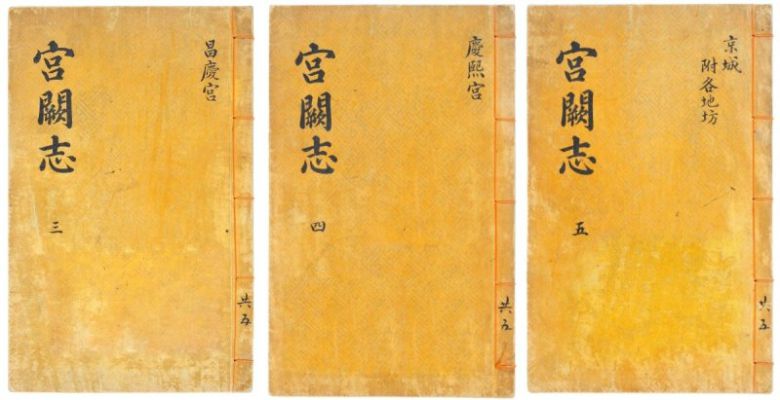 昌慶宮
宮闕志
三
共五
慶熙宮
宮闕志
四
共五
京城
附各地坊
宮闕志
五
共五